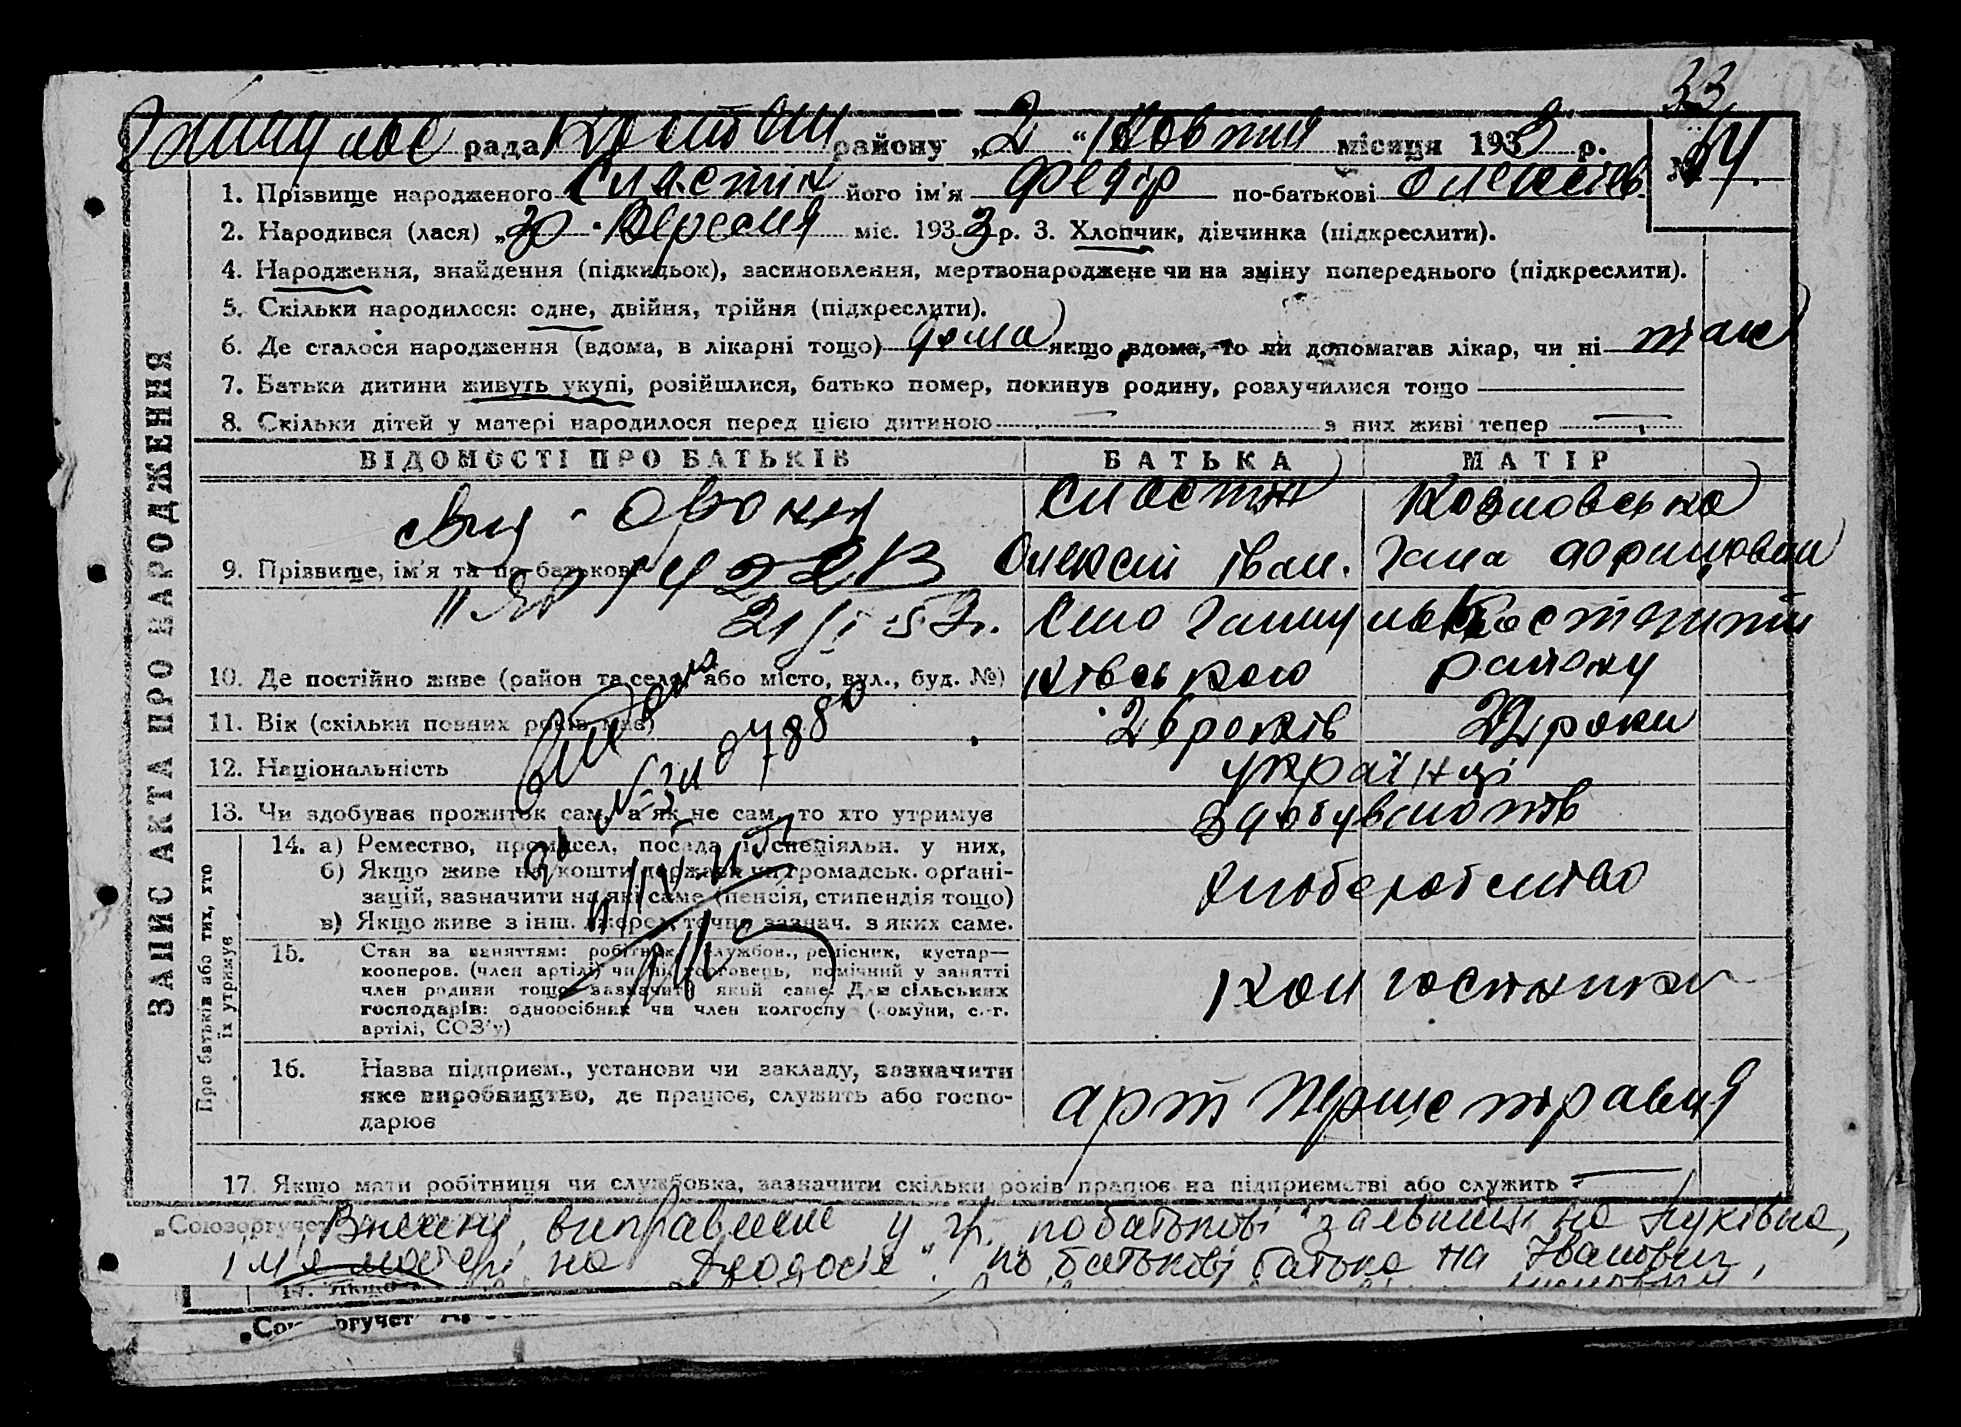 33
рада району „2“ Жовтня місяця 1933 р. 14.
1. Прізвище народженого Сластін його ім'я Федір по-батькові Олексієв.
2. Народився (лася) „30“ Вересня міс. 1933 р. 3. Хлопчик, дівчинка (підкреслити).
4. Народження, знайдення (підкидьок), засиновлення, мертвонароджене чи на зміну попереднього (підкреслити).
5. Скільки народилося: одне, двійня, трійня (підкреслити).
6. Де сталося народження (вдома, в лікарні тощо) дома якщо вдома, то чи допомагав лікар, чи ні так
7. Батьки дитини живуть укупі, розійшлися, батько помер, покинув родину, розлучилися тощо
8. Скільки дітей у матері народилося перед цією дитиною — з них живі тепер —
ЗАПИС АКТА ПРО НАРОДЖЕННЯ
ВІДОМОСТІ ПРО БАТЬКІВ БАТЬКА МАТІР
Сластін Козловська
9. Прізвище, ім'я та по-батькові Олексій Іван.
Село
10. Де постійно живе (район та село, або місто, вул., буд. №) району
11. Вік (скільки повних років має) 26 років 22 роки
12. Національність українці
13. Чи здобуває прожиток сам, а як не сам, то хто утримує здобувають
Про батьків або тих, хто їх утримує
14. а) Ремество, промисел, посада і спеціяльн. у них,
б) Якщо живе на кошти держави чи громадськ. орґані-
зацій, зазначити на які саме (пенсія, стипендія тощо) хліборобство
в) Якщо живе з інш. джерел, точно зазнач. з яких саме.
15. Стан за заняттям: робітник, службов., ремісник, кустар—
кооперов. (член артілі) чи ні, торговець, помічний у занятті
член родини тощо зазначити який саме. Для сільських
господарів: одноосібник чи член колгоспу (комуни, с.-г.
артілі, СОЗ'у)
колгоспники
16. Назва підприєм., установи чи закладу, зазначити
яке виробництво, де працює, служить або госпо-
дарює
арт Перше травня
17. Якщо мати робітниця чи службовка, зазначити скільки років працює на підприємстві або служить —
„Союзоргучет
виправлене у гр. по батькові
ім'я матері на по батькові батька на Іванович,
17. Якщо